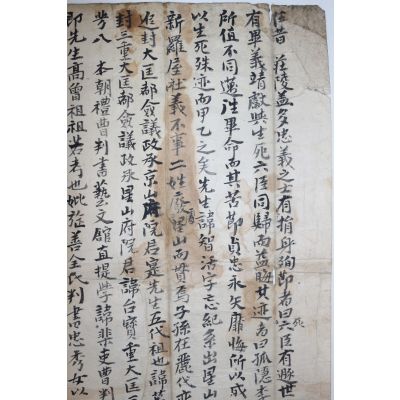 在昔 莊陵盖多忠義之士有捐身殉節者曰六臣有遯世
有畢義靖獻與生死六臣同歸而益晦其迹者曰孤隱李
所值不同邁往畢命而其苦節貞忠永矢靡悔所以成
以生死殊迹而甲乙之矣先生諱智活字忘紀系出星山
新羅屋壯義不事二姓廢居星山而貫焉子孫在麗代
封大匡都僉議政丞京山府院君寔先生五代祖也諱
封三重大匡都僉議政丞星山府院君諱台賢重大匡
考八 本朝禮曹判書藝文館直提學諱 吏曹判
卽先生高曾祖祖若考也妣 善全氏判書忠孝女以